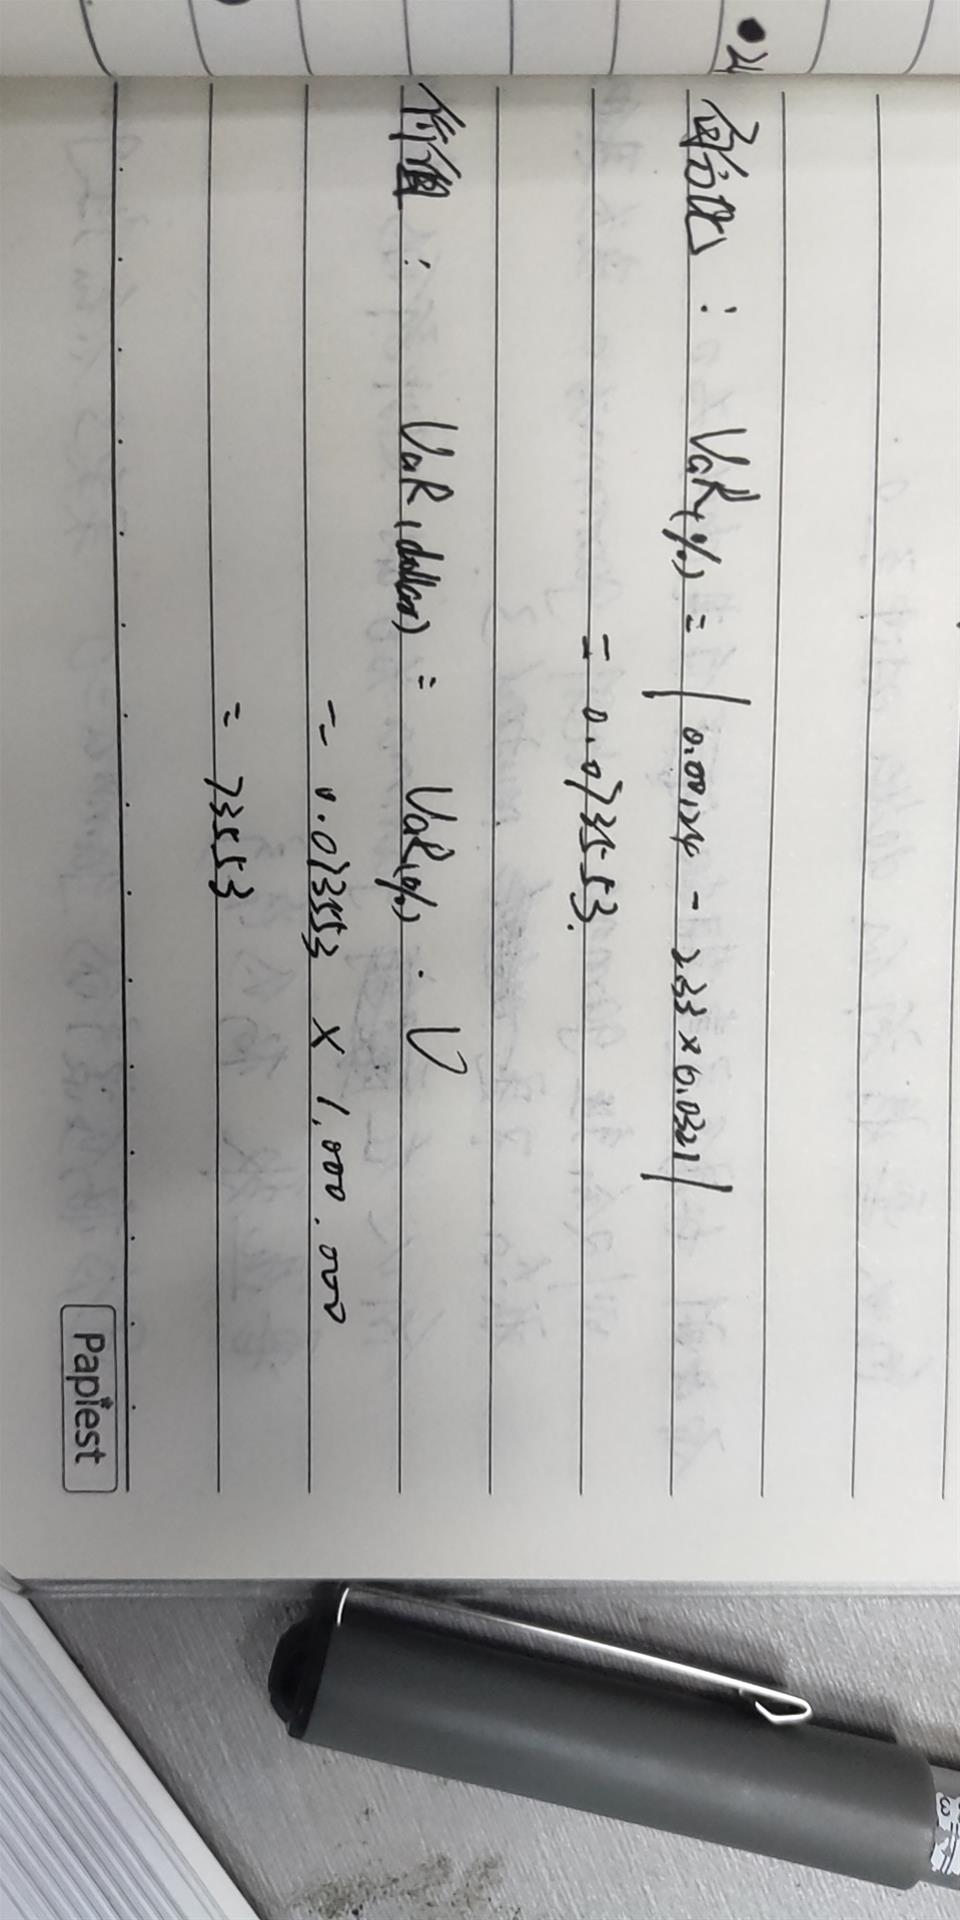 百分比： VaR(%) = | 0.00124 - 2.33 × 0.0321 |
= 0.073553.
价值： VaR(dollar) = VaR(%) · V
= 0.073553 × 1,000,000
= 73553
Papiest